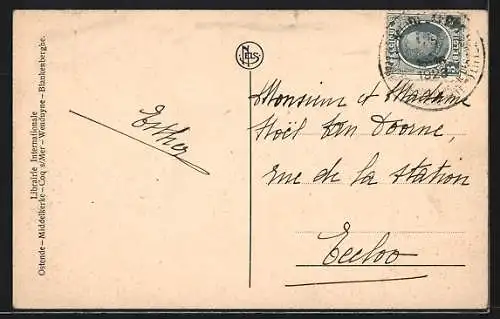 Librairie Internationale
Ostende - Middelkerke - Coq s/Mer - Wenduyne - Blankenberghe.
Esther
Nels
1923
Monsieur et Madame
Noël Van Doorne,
rue de la Station
Eecloo